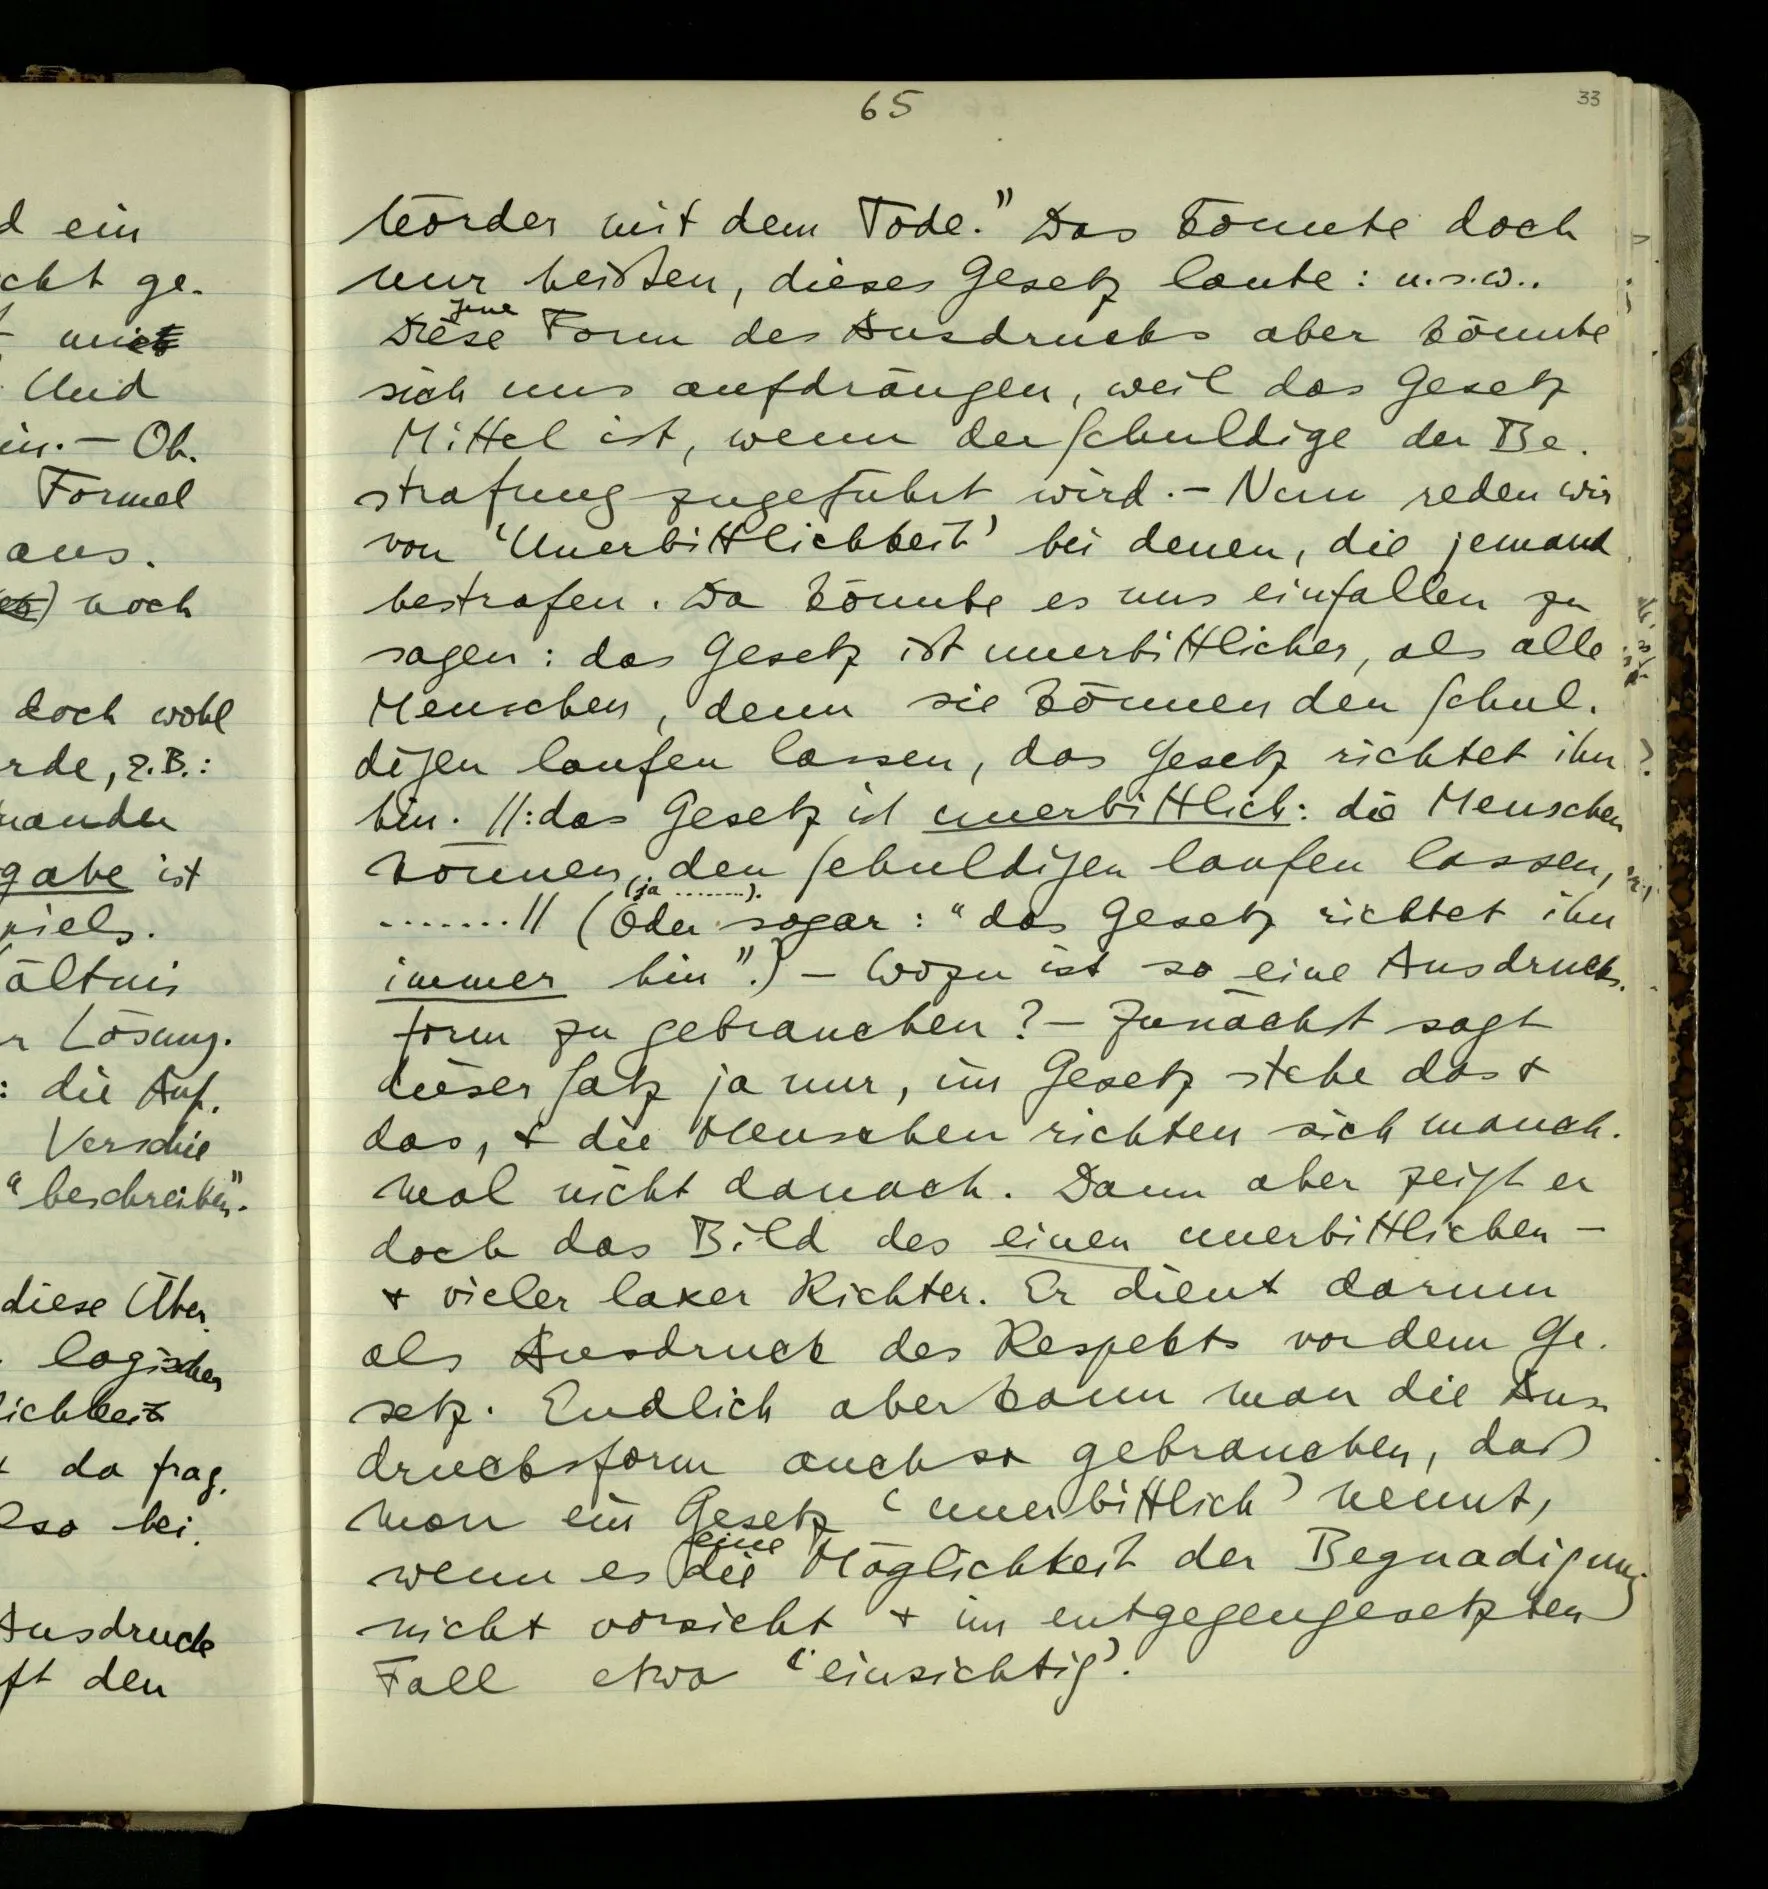 d ein
cht ge-
Und
in. – Ob-
Formel
aus.
noch
doch wohl
rde, z.B.:
nander
gabe ist
piels.
ältnis
r Lösung.
: die Auf-
Verschie
"beschreiben".
diese Über-
logischen
lichkeit
da frag-
lso bei-
Ausdruck
ft den
65
33
Mörder mit dem Tode." Das könnte doch
nur heißen, dieses Gesetz laute: u.s.w..
jene
Diese Form des Ausdrucks aber könnte
sich uns aufdrängen, weil das Gesetz
Mittel ist, wenn der Schuldige der Be-
strafung zugeführt wird. – Nun reden wir
von 'Unerbittlichkeit' bei denen, die jemand
bestrafen. Da könnte es uns einfallen zu
sagen: das Gesetz ist unerbittlicher, als alle
Menschen, denn sie können den Schul-
digen laufen lassen, das Gesetz richtet ihn
hin. //: das Gesetz ist unerbittlich: die Menschen
können den Schuldigen laufen lassen,
(ja ........).
.......// (Oder sogar: "das Gesetz richtet ihn
immer hin".) – Wozu ist so eine Ausdrucks-
form zu gebrauchen? – Zunächst sagt
dieser Satz ja nur, im Gesetz stehe das &
das, & die Menschen richten sich manch-
mal nicht danach. Dann aber zeigt er
doch das Bild des einen unerbittlichen –
& vieler laxer Richter. Er dient darum
als Ausdruck des Respekts vor dem Ge-
setz. Endlich aber kann man die Aus-
drucksform auch so gebrauchen, daß
man ein Gesetz 'unerbittlich' nennt,
eine
wenn es die Möglichkeit der Begnadigung
nicht vorsieht & im entgegengesetzten
Fall etwa 'einsichtig'.